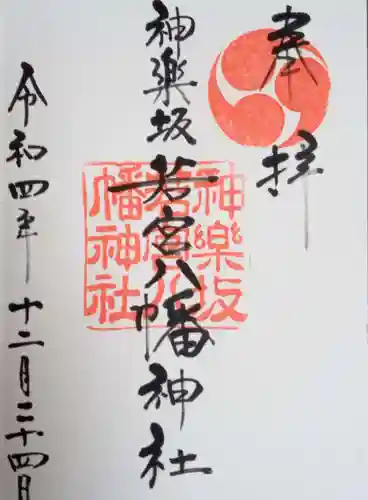 奉拝
神樂坂若宮八幡神社
神樂坂
若宮八
幡神社
令和四年十二月二十四日